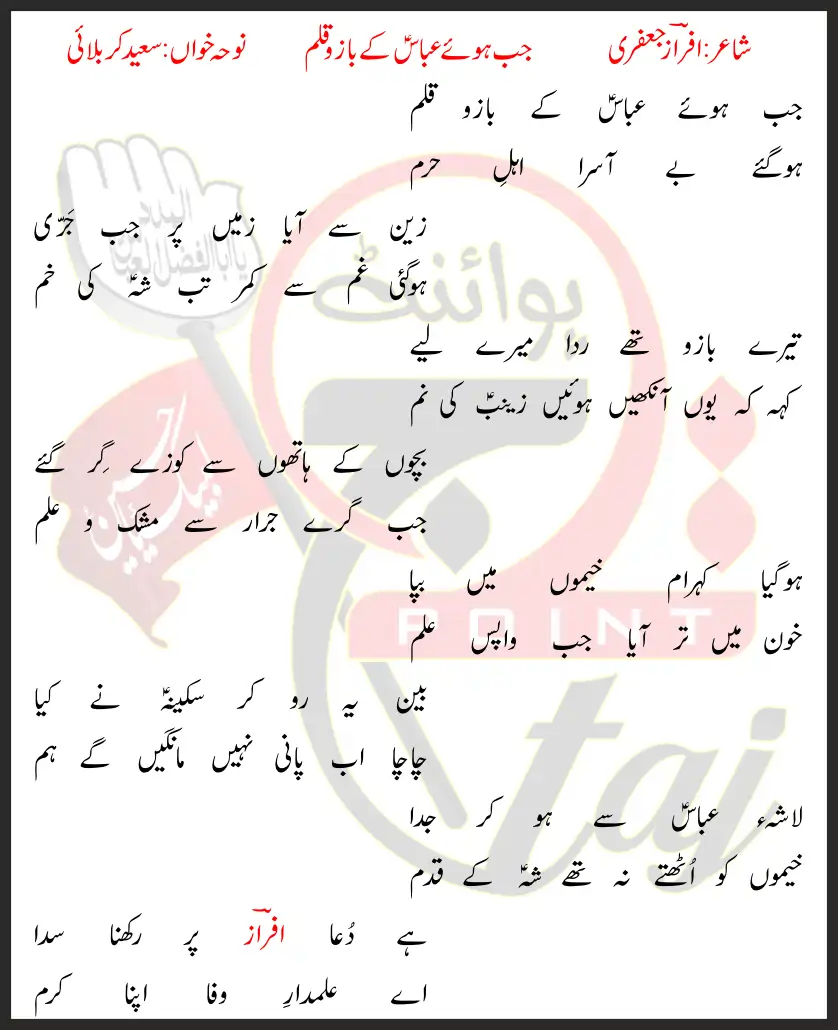 شاعر: افرازؔ جعفری جب ہوئے عباسؑ کے بازو قلم نوحہ خواں: سعید کربلائی
جب ہوئے عباسؑ کے بازو قلم
ہوگئے بے آسرا اہلِ حرم
زین سے آیا زمیں پر جب جَرّی
ہوگئی غم سے کمر تب شہؑ کی خم
تیرے بازو تھے ردا میرے لیے
کہہ کہ یوں آنکھیں ہوئیں زینبؑ کی نم
بچوں کے ہاتھوں سے کوزے گِر گئے
جب گرے جرار سے مشک و علم
ہوگیا کہرام خیموں میں بپا
خون میں تر آیا جب واپس علم
بین یہ رو کر سکینہؑ نے کیا
چاچا اب پانی نہیں مانگیں گے ہم
لاشہء عباسؑ سے ہو کر جدا
خیموں کو اُٹھتے نہ تھے شہؑ کے قدم
ہے دُعا افرازؔ پر رکھنا سدا
اے علمدارِ وفا اپنا کرم
یا ابالفضل العباس
لبیک یا حسین
پوائنٹ
POINT
taj